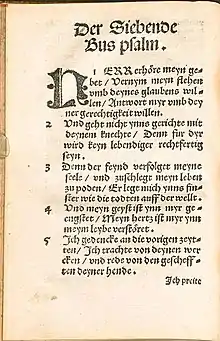 Der Siebende
Bus psalm.
HERR erhöre meyn ge-
bet / Vernym meyn flehen
umb deynes glaubens wil-
len / Antwort myr umb dey
ner gerechtigkeit willen.
2 Und geht nicht ynns gerichte mit
deynem knechte / Denn für dyr
wird keyn lebendiger rechtfertig
seyn.
3 Denn der feynd verfolget meyne
seele / und zuschlegt meyn leben
zu poden / Er legt mich ynns fin-
ster wie die todten auff der wellt.
4 Und meyn geyst ist ynn myr ge-
engstet / Meyn hertz ist myr ynn
meym leybe verstöret.
5 Ich gedencke an die vorigen zeyt-
ten / Ich trachte von deynen wer
cken / und rede von den gescheff-
ten deyner hende.
Ich preite